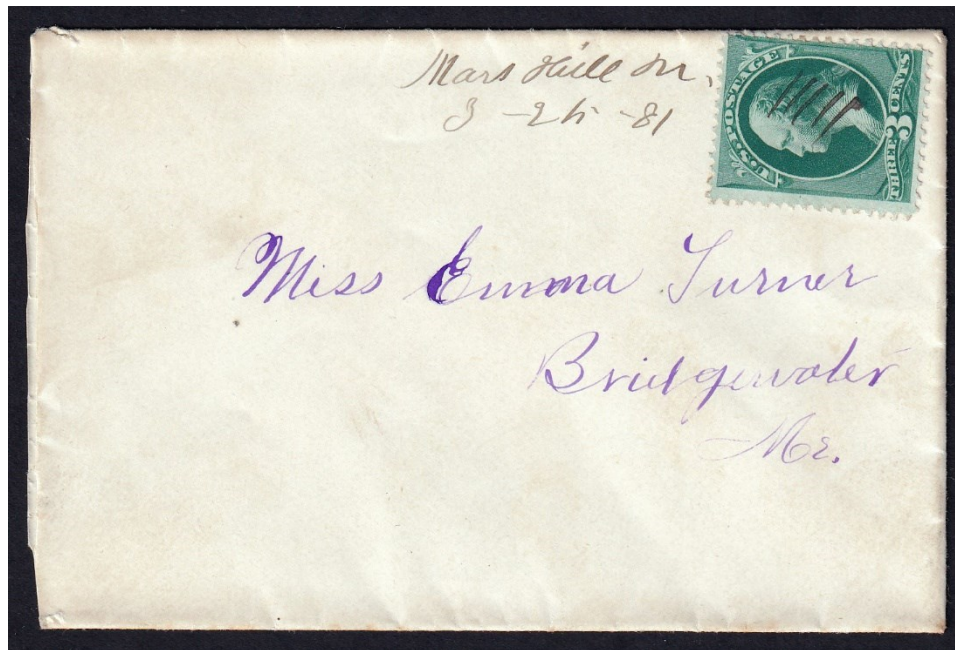 Mars Hill M,
3 - 25 - 81
U.S. POSTAGE
THREE 3 CENTS
Miss Emma Turner
Bridgewater
Me.